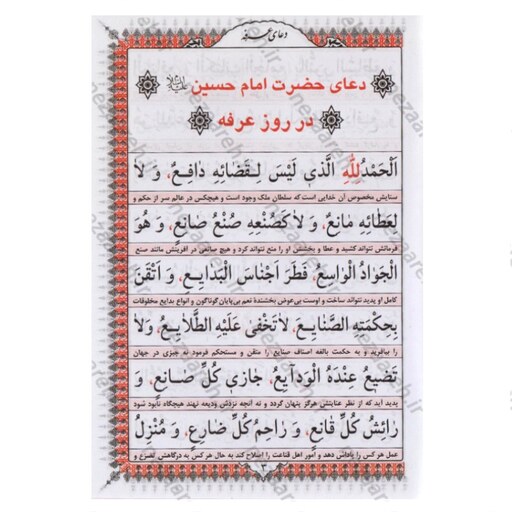 دعای عرفه
دعای حضرت امام حسین
در روز عرفه
اَلْحَمْدُ لِلّٰهِ الَّذي لَيْسَ لِقَضٰائِهِ دٰافِعٌ، وَ لاٰ
ستایش مخصوص آن خدایی است که سلطان ملک وجود است و هیچکس در عالم سر از حکم و
لِعَطٰائِهِ مٰانِعٌ، وَ لاٰ كَصُنْعِهِ صُنْعُ صٰانِعٍ، وَ هُوَ
فرمانش نتواند کشید و عطا و بخشش او را منع نتواند کرد و هیچ صانعی در آفرینش مانند صنع
الْجَوٰادُ الْوٰاسِعُ، فَطَرَ اَجْنٰاسَ الْبَدٰايِعِ، وَ اَتْقَنَ
کامل او پدید نتواند ساخت و اوست بی‌عوض بخشندهٔ نعم بی‌پایان گوناگون و انواع بدایع مخلوقات
بِحِكْمَتِهِ الصَّنٰايِعَ، لاٰ تَخْفىٰ عَلَيْهِ الطَّلاٰيِعُ، وَ لاٰ
را بیافرید و به حکمت بالغه اصناف صنایع را متقن و مستحکم فرمود هر چیزی در جهان
تَضيعُ عِنْدَهُ الْوَدٰايِعُ، جٰازي كُلِّ صٰانِعٍ، وَ
پدید آید که از نظر عنایتش هرگز پنهان گردد و نه آنچه نزدش ودیعه نهند هیچگاه نابود شود
رٰائِشُ كُلِّ قٰانِعٍ، وَ رٰاحِمُ كُلِّ ضٰارِعٍ، وَ مُنْزِلُ
عمل هر کس را پاداش دهد و امور اهل قناعت را اصلاح کند به حال هر کس به درگاهش تضرع و
۳
nezaareh.ir